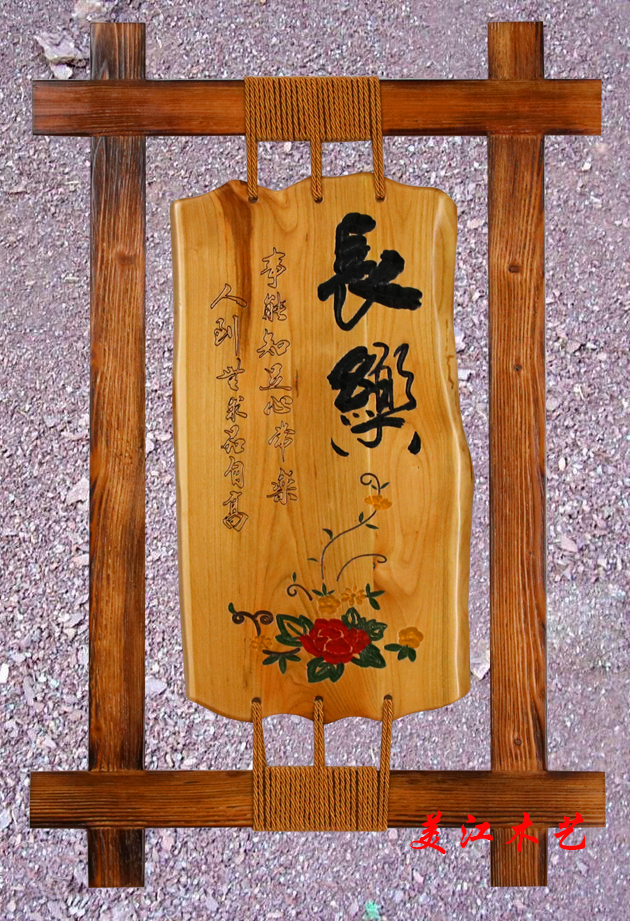 長樂
事能知足心常樂
人到無求品自高
美江木艺